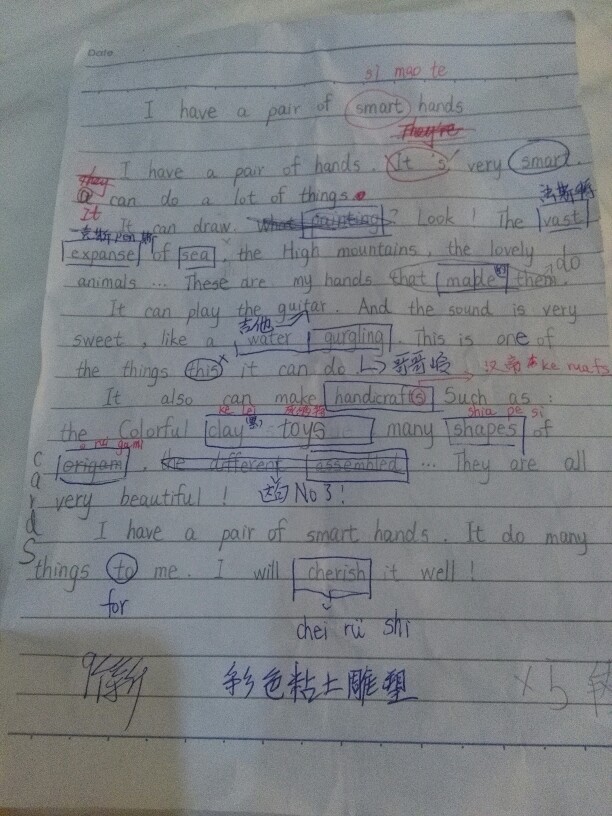 Date
si mao te
I have a pair of smart hands
They're
I have a pair of hands. It's very smart.
They
a can do a lot of things.
It It can draw. What painting? Look! The vast
expanse of sea, the High mountains, the lovely do
animals ... These are my hands that mable them.
It can play the guitar. And the sound is very
吉他
sweet, like a water gurgling. This is one of
the things this it can do 哥哥
It also can make handicrafts Such as:
ke lei shia pe si
the Colorful clay toys many shapes of
origam, the different assembled ... They are all
cards
very beautiful! No 3!
I have a pair of smart hands. It do many
things to me. I will cherish it well!
for
chei rü shi
彩色粘土雕塑
x5